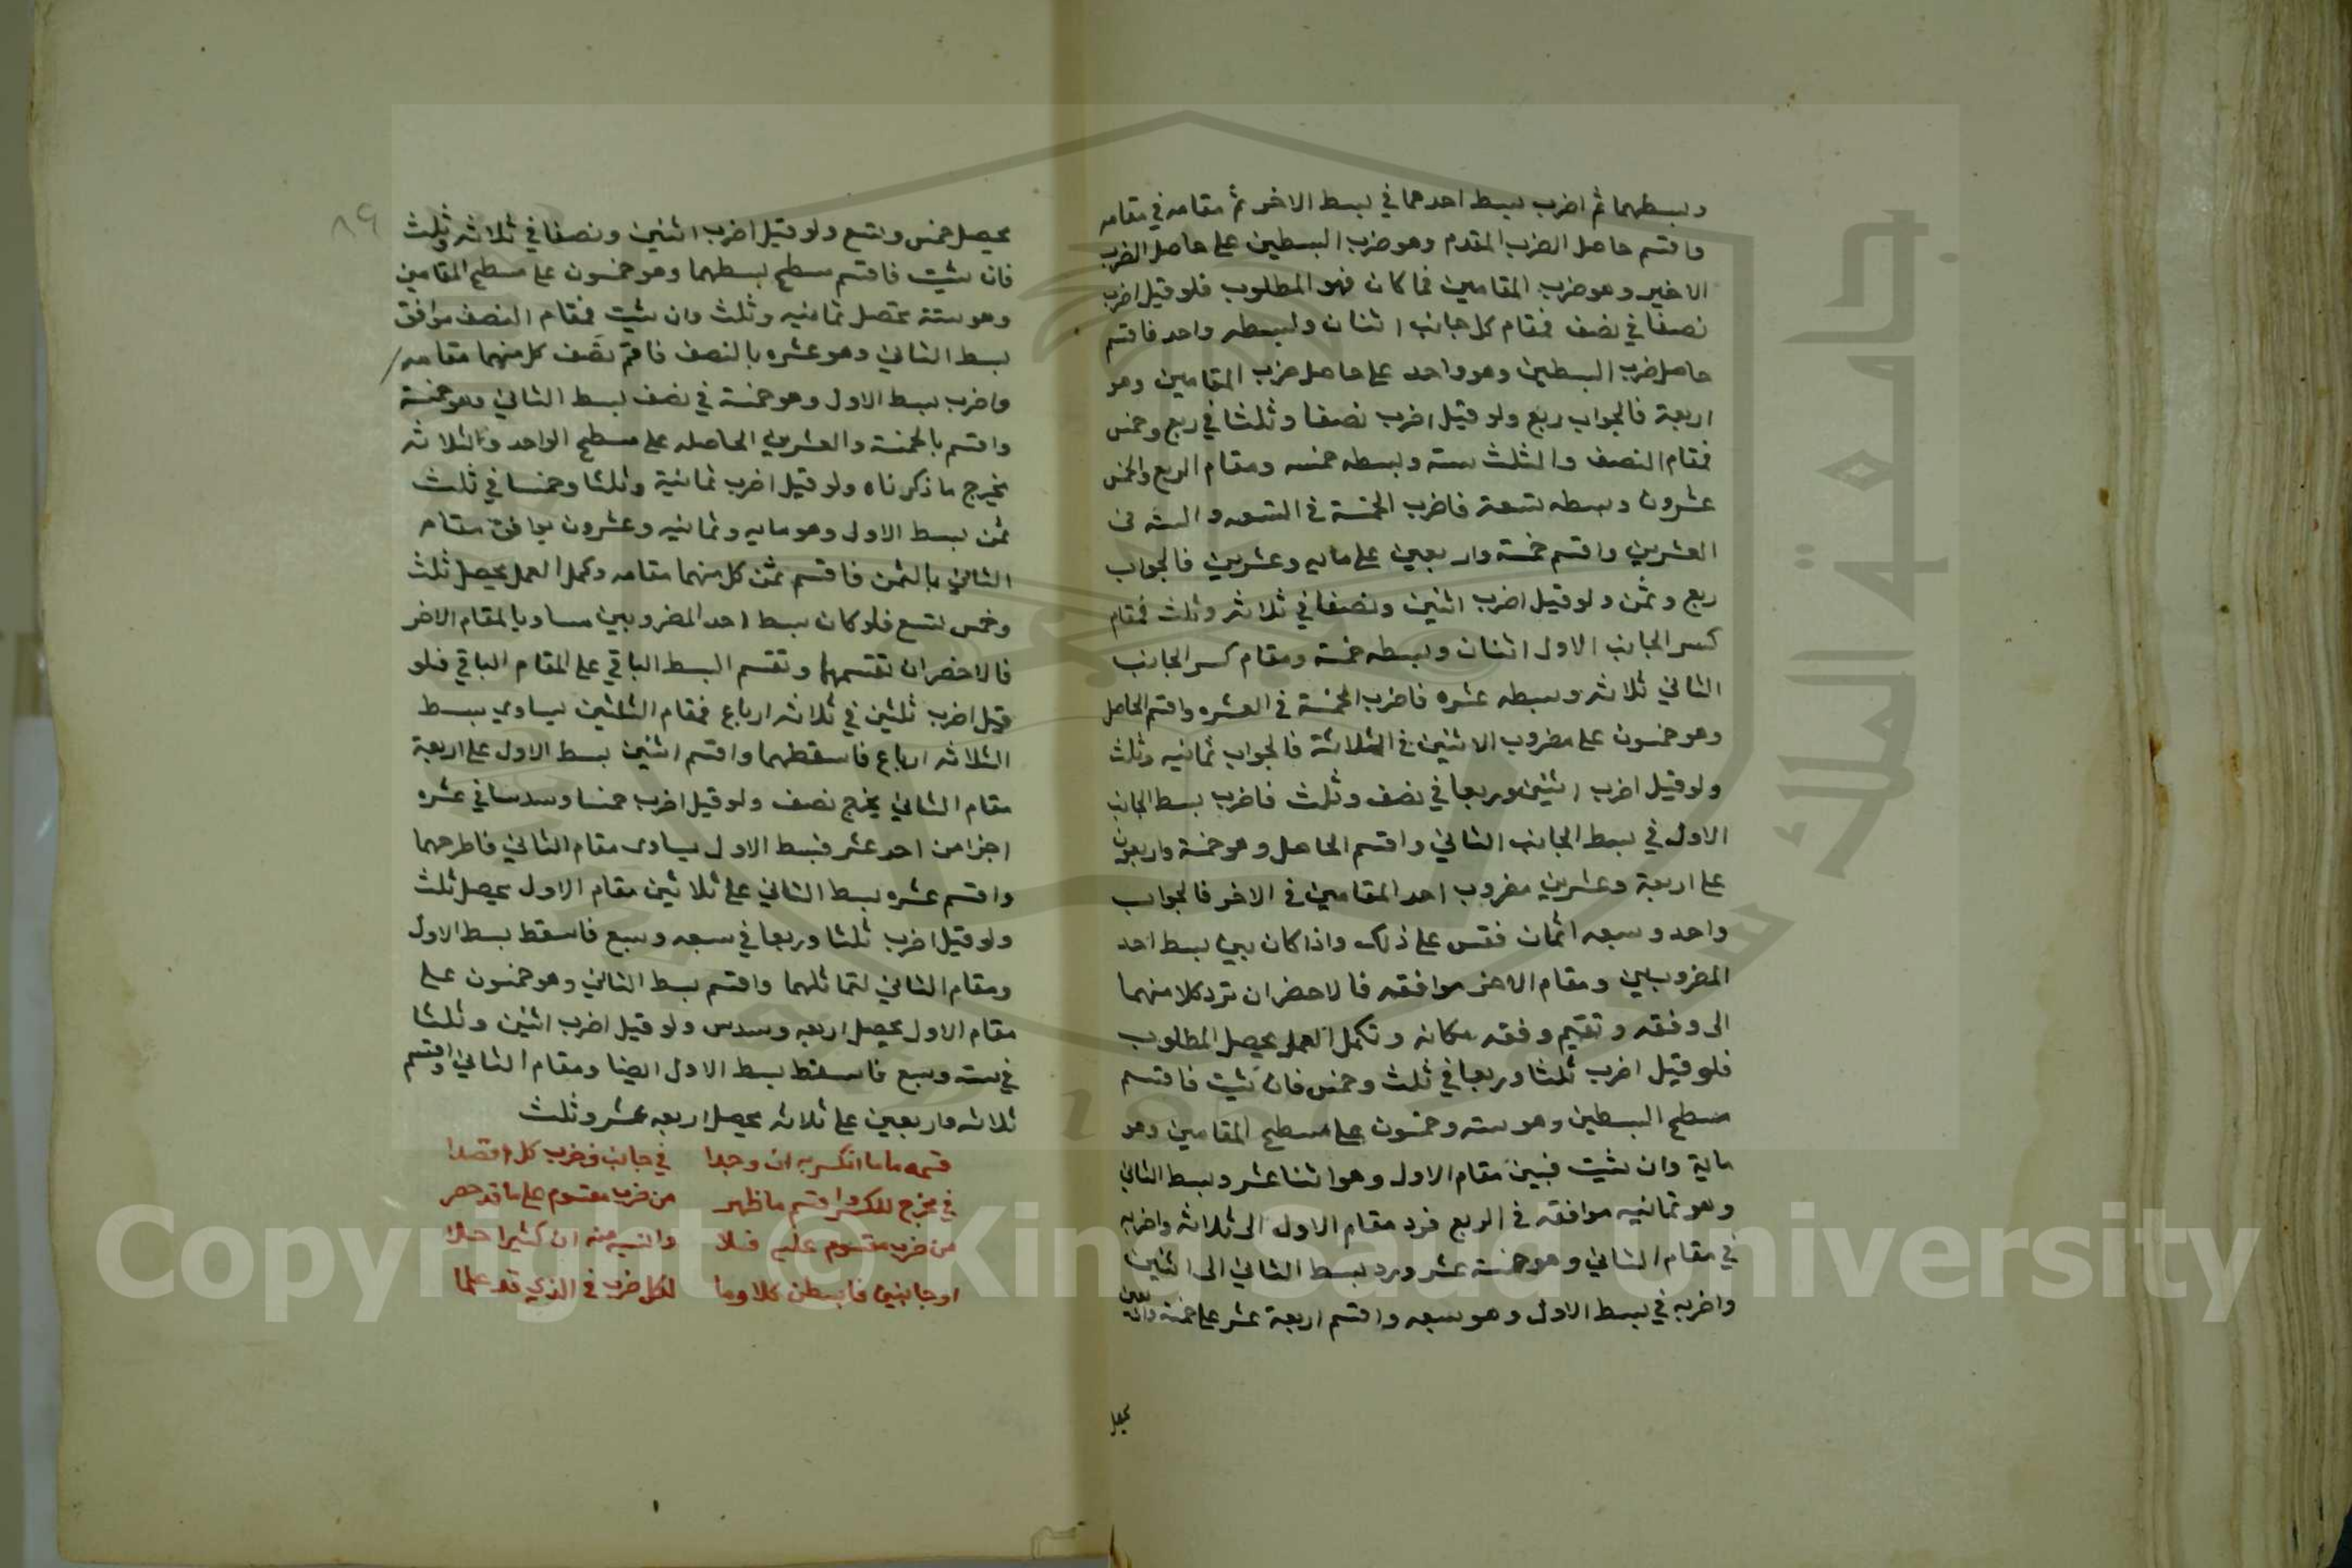 وبسطهما ثم اضرب بسط احدهما في بسط الاخر ثم مقامه في مقامه
واقسم حاصل الضرب المقدم وهو ضرب البسطين على حاصل الضرب
الاخير وهو ضرب المقامين فما كان فهو المطلوب فلو قيل اضرب
نصفا في نصف فمقام كل جانب اثنان وبسطه واحد فاقسم
حاصل ضرب البسطين وهو واحد على حاصل ضرب المقامين وهو
اربعة فالجواب ربع ولو قيل اضرب نصفا وثلثا في ربع وخمس
فمقام النصف والثلث سته وبسطه خمسه ومقام الربع والخمس
عشرون وبسطه تسعة فاضرب الخمسة في التسعه والسته في
العشرين واقسم خمسة واربعين على مايه وعشرين فالجواب
ربع وثمن ولو قيل اضرب اثنين ونصفا في ثلاثه وثلث فمقام
كسر الجانب الاول اثنان وبسطه خمسة ومقام كسر الجانب
الثاني ثلاثه وبسطه عشره فاضرب الخمسة في العشره واقسم الحاصل
وهو خمسون على مضروب الاثنين في الثلاثة فالجواب ثمانيه وثلث
ولو قيل اضرب اثنين وربعا في نصف وثلث فاضرب بسط الجانب
الاول في بسط الجانب الثاني واقسم الحاصل وهو خمسة واربعون
على اربعة وعشرين مضروب احد المقامين في الاخر فالجواب
واحد وسبعه اثمان فقس على ذلك واذا كان بين بسط احد
المضروبين ومقام الاخر موافقه فالاخضر ان ترد كلا منهما
الى وفقه وتقيم وفقه مكانه وتكمل العمل يحصل المطلوب
فلو قيل اضرب ثلثا وربعا في ثلث وخمس فان شيت فاقسم
مسطح البسطين وهو سته وخمسون على مسطح المقامين وهو
ماية وان شيت فبين مقام الاول وهو اثنا عشر وبسط الثاني
وهو ثمانيه موافقه في الربع فرد مقام الاول الى ثلاثه واضربه
في مقام الثاني وهو خمسة عشر ورد بسط الثاني الى اثنين
واضربه في بسط الاول وهو سبعه واقسم اربعة عشر على خمسة واربعين
يحصل
٨٩
يحصل خمس وتسع ولو قيل اضرب اثنين ونصفا في ثلاثه وثلث
فان شيت فاقسم مسطح بسطهما وهو خمسون على مسطح المقامين
وهو ستة تحصل ثمانيه وثلث وان شيت فمقام النصف موافق
بسط الثاني وهو عشره بالنصف فاقم نصف كل منهما مقامه
واضرب بسط الاول وهو خمسة في نصف بسط الثاني وهو خمسة
واقسم بالخمسة والعشرين الحاصله على مسطح الواحد والثلاثه
يخرج ما ذكرناه ولو قيل اضرب ثمانية وثلثا وخمسا في ثلث
ثمن بسط الاول وهو مايه وثمانيه وعشرون يوافق مقام
الثاني بالثمن فاقسم ثمن كل منهما مقامه وكمل العمل يحصل ثلث
وخمس تسع فلو كان بسط احد المضروبين مساويا لمقام الاخر
فالاخضر ان تقسمهما وتقسم البسط الباقي على المقام الباقي فلو
قيل اضرب ثلثين في ثلاثه ارباع فمقام الثلثين يساوي بسط
الثلاثه ارباع فاسقطهما واقسم اثنين بسط الاول على اربعة
مقام الثاني يخرج نصف ولو قيل اضرب خمسا وسدسا في عشره
اجزا من احد عشر فبسط الاول يساوى مقام الثاني فاطرحهما
واقسم عشره بسط الثاني على ثلاثين مقام الاول يحصل ثلث
ولو قيل اضرب ثلثا وربعا في سبعه وسبع فاسقط بسط الاول
ومقام الثاني لتماثلهما واقسم بسط الثاني وهو خمسون على
مقام الاول يحصل اربعه وسدس ولو قيل اضرب اثنين وثلثا
في سته وسبع فاسقط بسط الاول ايضا ومقام الثاني واقسم
ثلاثه واربعين على ثلاثه يحصل اربعه عشر وثلث
قسمه ما ما انكسر به ان وجدا في جانب فضرب كل اقصدا
في مخرج للكسر واقسم ما ظهر من ضرب مقسوم على ما قد حصر
من ضرب مقسوم عليه فلا وانسبه منه ان كثيرا حلا
او جانبين فابسطن كلا وما لكل ضرب في الذي قد علما
جامعة الملك سعود
1957
Copyright © King Saud University